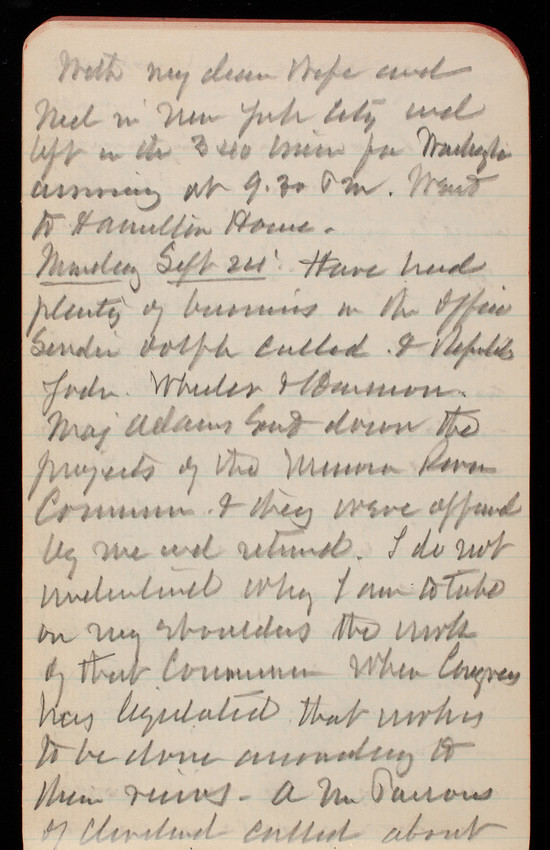 With my dear Wife and
Ned in New York City and
left in the 3 40 train for Washington
arriving at 9.30 P m. Went
to Hamilton House.
Monday Sept 24: Have had
plenty of business in the office
Senator Dolph called. & Repub
Wheeler &
Maj Adams sent down the
projects of the Missouri River
Commn. & they were approved
by me and returned. I do not
understand why I am to take
on my shoulders the work
of that Commission when Congress
has legislated that works
to be done according to
their views - A Mr Parsons
of Cleveland called about